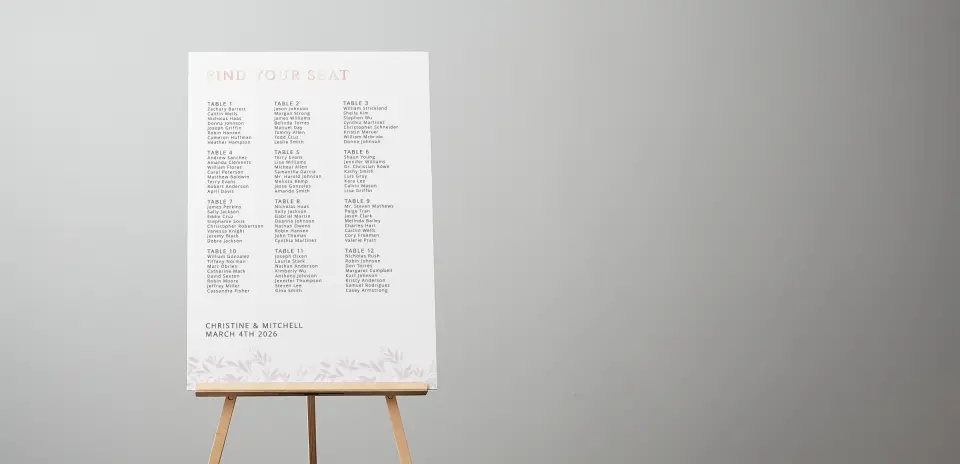 FIND YOUR SEAT
TABLE 1
Zachary Barrett
Caitlin Wells
Nicholas Haas
Donna Johnson
Joseph Griffin
Robin Hansen
Cameron Huffman
Heather Hampton
TABLE 2
Jason Johnson
Morgan Strong
James Williams
Belinda Torres
Manuel Day
Tommy Allen
Todd Cruz
Leslie Smith
TABLE 3
William Strickland
Sheila Kim
Stephen Wu
Cynthia Martinez
Christopher Schneider
Kristin Mercer
William Mcbride
Donna Johnson
TABLE 4
Andrew Sanchez
Amanda Clements
William Flores
Carol Peterson
Matthew Baldwin
Terry Evans
Robert Anderson
April Davis
TABLE 5
Terry Evans
Lisa Williams
Micheal Allen
Samantha Garcia
Mr. Harold Johnson
Melissa Kemp
Jesse Gonzales
Amanda Smith
TABLE 6
Shaun Young
Jennifer Williams
Dr. Christian Rowe
Kathy Smith
Luis Gray
Kara Lee
Calvin Mason
Lisa Griffin
TABLE 7
James Pereney
Sally Jackson
Eddie Cruz
Stephanie Solis
Christopher Robertson
Vanessa Knight
Jeremy Black
Debra Jackson
TABLE 8
Nicholas Haas
Sally Jackson
Gabriel Martin
Deanna Johnson
Nathan Owens
Robin Hansen
John Thomas
Cynthia Martinez
TABLE 9
Mr. Steven Mathews
Paige Tran
Jason Clark
Melinda Bailey
Charles Hart
Caitlin Wells
Cory Freeman
Valerie Pratt
TABLE 10
William Gonzalez
Tiffany Norman
Marc Obrien
Catherine Mack
David Sexton
Robin Moore
Jeffrey Miller
Cassandra Fisher
TABLE 11
Joseph Dixon
Laurie Stark
Nathan Anderson
Kimberly Wu
Anthony Johnson
Jennifer Thompson
Steven Lee
Gina Smith
TABLE 12
Nicholas Rush
Robin Johnson
Dori Torres
Margaret Campbell
Kurt Johnson
Kristy Anderson
Samuel Rodriguez
Casey Armstrong
CHRISTINE & MITCHELL
MARCH 4TH 2026